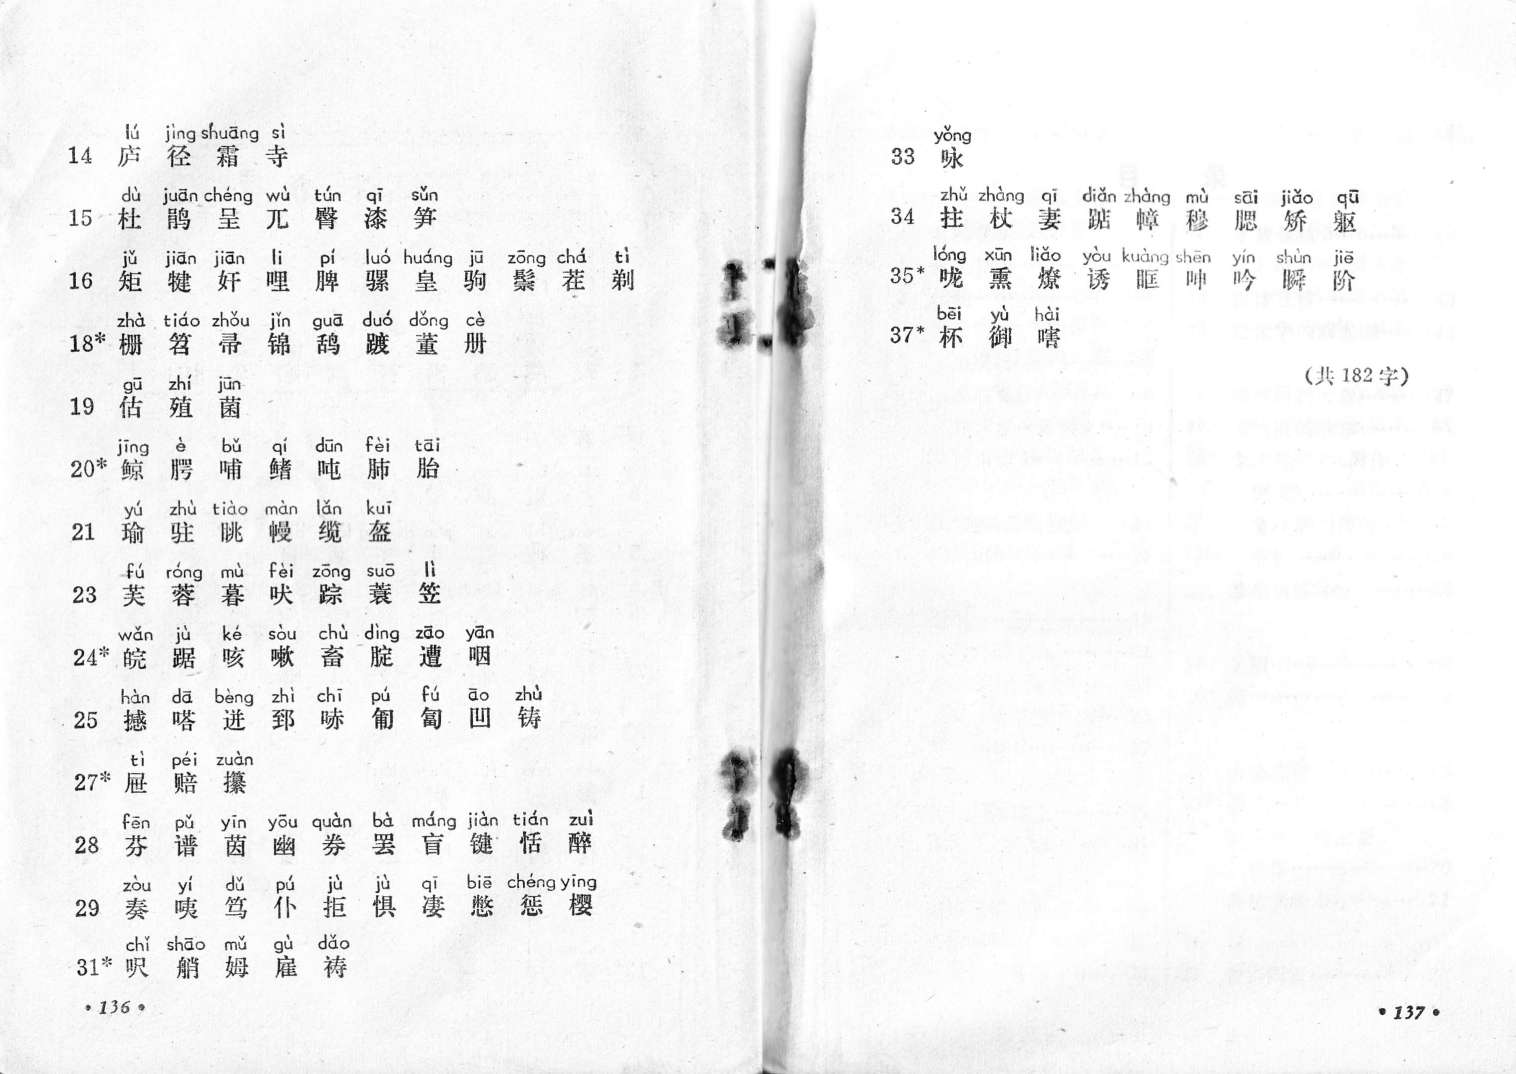 lú jìng shuāng sì
14 庐 径 霜 寺
dù juān chéng wù tún qī sǔn
15 杜 鹃 呈 兀 臀 漆 笋
jǔ jiān jiān li pí luó huáng jū zōng chá tì
16 矩 犍 奸 哩 脾 骡 皇 驹 鬃 茬 剃
zhà tiáo zhǒu jǐn guā duó dǒng cè
18* 栅 笤 帚 锦 鸹 踱 董 册
gū zhí jūn
19 估 殖 菌
jīng è bǔ qí dūn fèi tāi
20* 鲸 腭 哺 鳍 吨 肺 胎
yú zhù tiào màn lǎn kuī
21 瑜 驻 眺 幔 缆 盔
fú róng mù fèi zōng suō lì
23 芙 蓉 暮 吠 踪 蓑 笠
wǎn jù ké sòu chù dìng zāo yān
24* 皖 踞 咳 嗽 畜 腚 遭 咽
hàn dā bèng zhì chī pú fú āo zhù
25 撼 嗒 迸 郅 哧 匍 匐 凹 铸
tì péi zuàn
27* 屉 赔 攥
fēn pǔ yīn yōu quàn bà máng jiàn tián zuì
28 芬 谱 茵 幽 券 罢 盲 键 恬 醉
zòu yí dǔ pú jù jù qī biē chéng yīng
29 奏 咦 笃 仆 拒 惧 凄 憋 惩 樱
chǐ shāo mǔ gù dǎo
31* 呎 艄 姆 雇 祷
• 136 •
yǒng
33 咏
zhǔ zhàng qī diǎn zhàng mù sāi jiǎo qū
34 拄 杖 妻 踮 幛 穆 腮 矫 躯
lóng xūn liǎo yòu kuàng shēn yín shùn jiē
35* 咙 熏 燎 诱 眶 呻 吟 瞬 阶
bēi yù hài
37* 杯 御 嗐
(共 182 字)
• 137 •